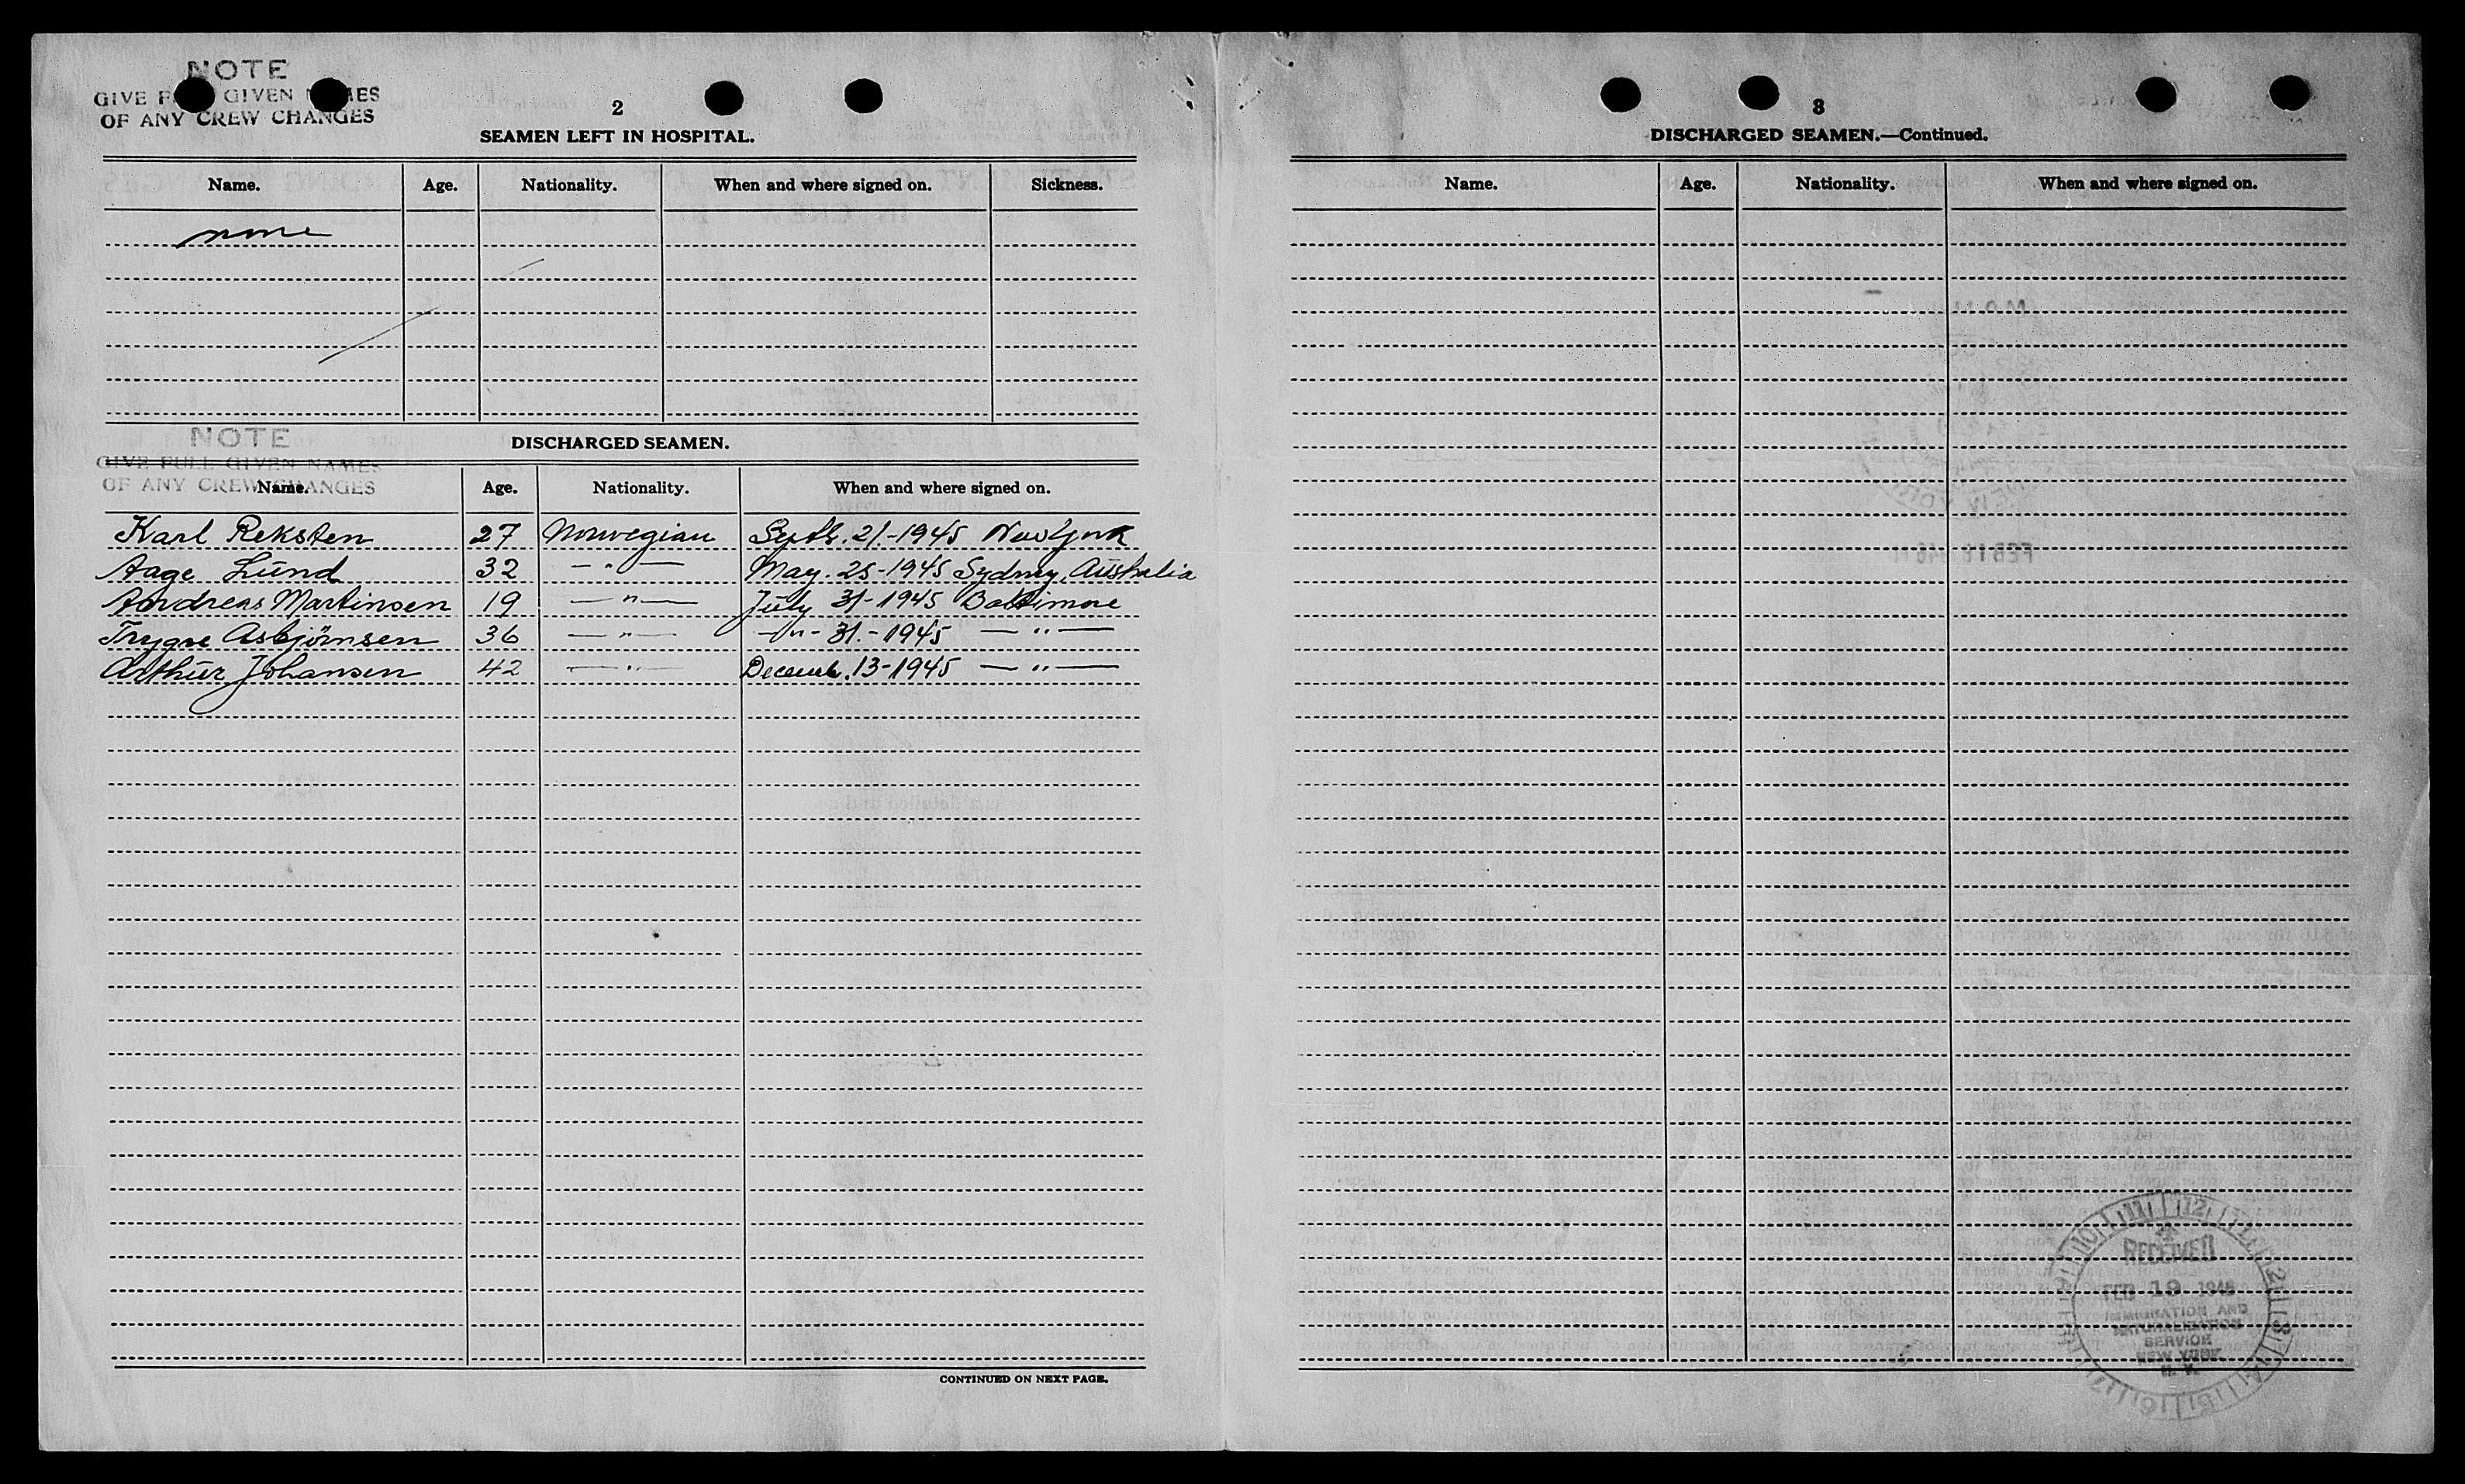 NOTE
GIVE F GIVEN MES
OF ANY CREW CHANGES
2
SEAMEN LEFT IN HOSPITAL.
Name. Age. Nationality. When and where signed on. Sickness.
none
NOTE
DISCHARGED SEAMEN.
GIVE FULL GIVEN NAMES
OF ANY CREW CHANGES
Name. Age. Nationality. When and where signed on.
Karl Reksten 27 Norwegian Septb. 21.-1945 New York
Aage Lund 32 — " — May. 25-1945 Sydney, Australia
Andreas Martinsen 19 — " — July 31-1945 Baltimore
Trygve Asbjörnsen 36 — " — -"- 31.-1945 — " —
Arthur Johansen 42 — " — Decemb. 13-1945 — " —
CONTINUED ON NEXT PAGE.
3
DISCHARGED SEAMEN.—Continued.
Name. Age. Nationality. When and where signed on.
RECEIVED
FEB 19 1946
IMMIGRATION AND
NATURALIZATION
SERVICE
NEW YORK
N. Y.